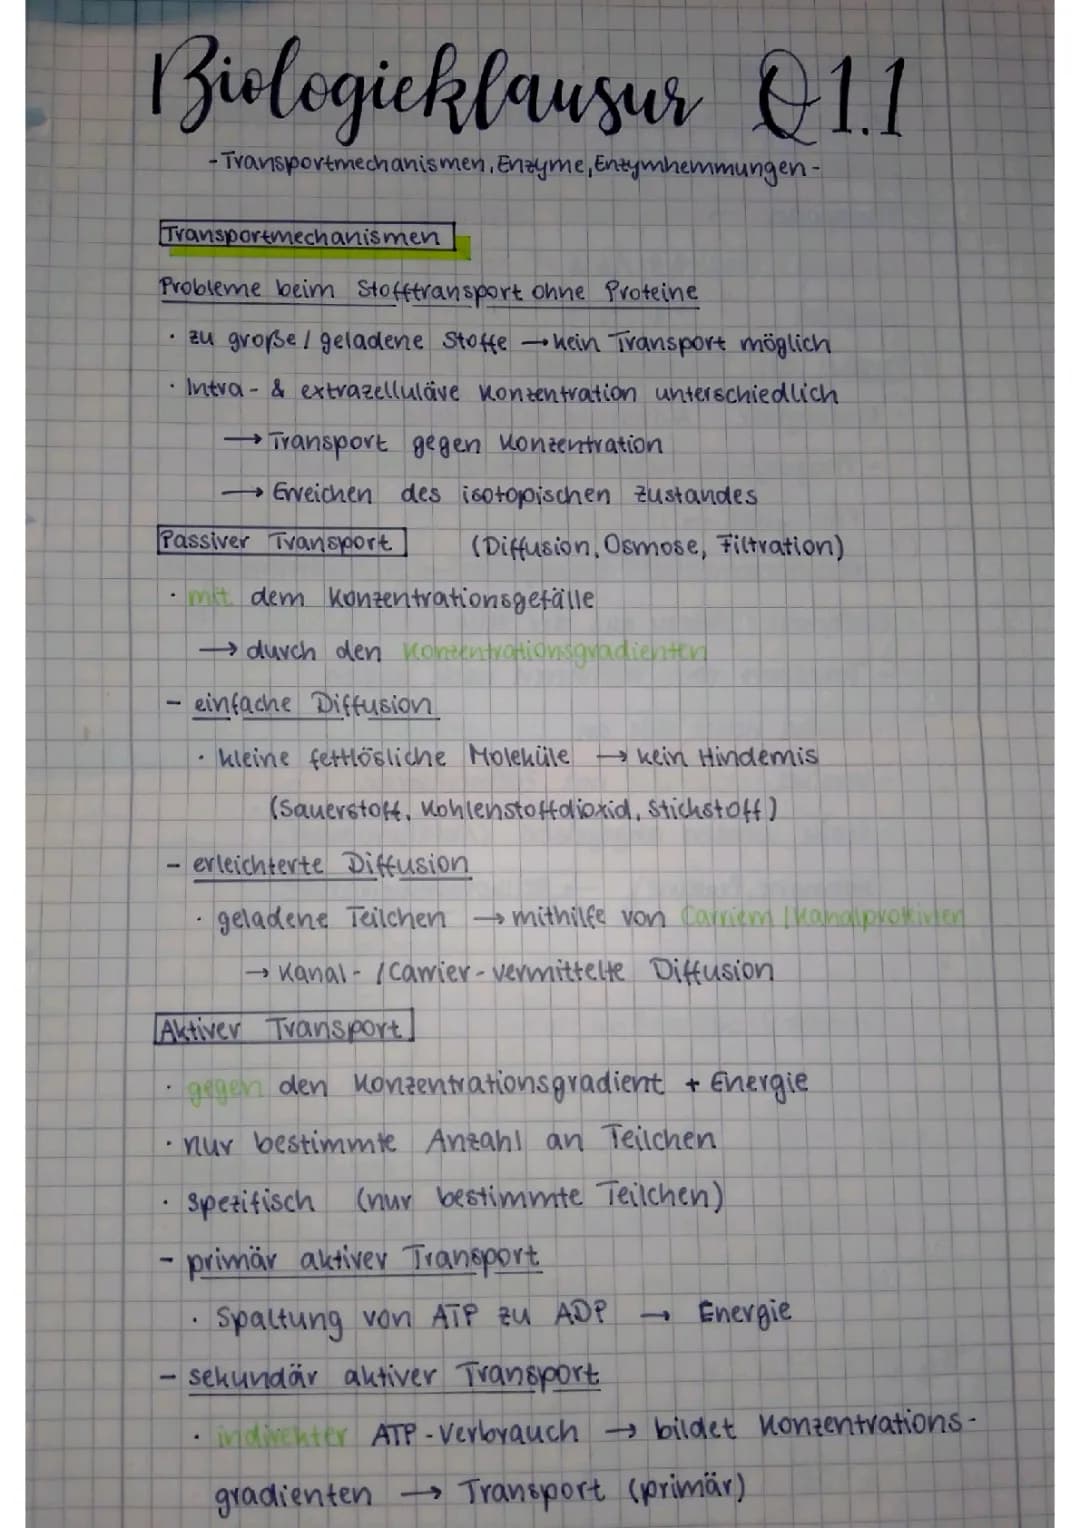 Biologieklausur Q1.1
- Transportmechanismen, Enzyme, Enzymhemmungen -
Transportmechanismen
Probleme beim Stofftransport ohne Proteine
· zu große / geladene Stoffe → kein Transport möglich
· Intra- & extrazelluläre Konzentration unterschiedlich
→ Transport gegen Konzentration
→ Erreichen des isotopischen Zustandes
Passiver Transport (Diffusion, Osmose, Filtration)
· mit dem Konzentrationsgefälle
→ durch den Konzentrationsgradienten
- einfache Diffusion
· kleine fettlösliche Moleküle → kein Hindernis
(Sauerstoff, Kohlenstoffdioxid, Stickstoff)
- erleichterte Diffusion
· geladene Teilchen → mithilfe von Carriern / Kanalproteinen
→ Kanal- / Carrier-vermittelte Diffusion
Aktiver Transport
· gegen den Konzentrationsgradient + Energie
· nur bestimmte Anzahl an Teilchen
· spezifisch (nur bestimmte Teilchen)
- primär aktiver Transport
· Spaltung von ATP zu ADP → Energie
- sekundär aktiver Transport
· indirekter ATP-Verbrauch → bildet Konzentrations-
gradienten → Transport (primär)